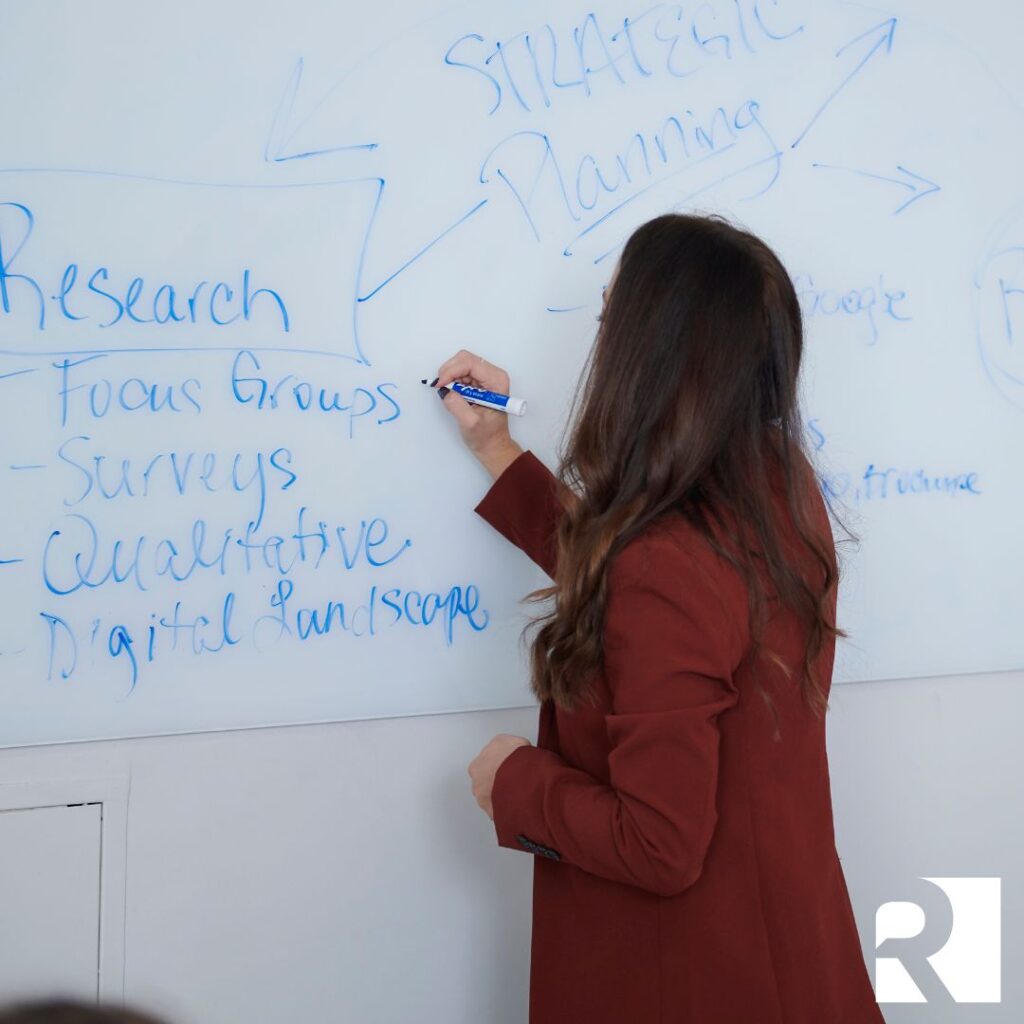 STRATEGIC
Planning
Research
- Focus Groups
- Surveys
- Qualitative
- Digital Landscape
- Google
R